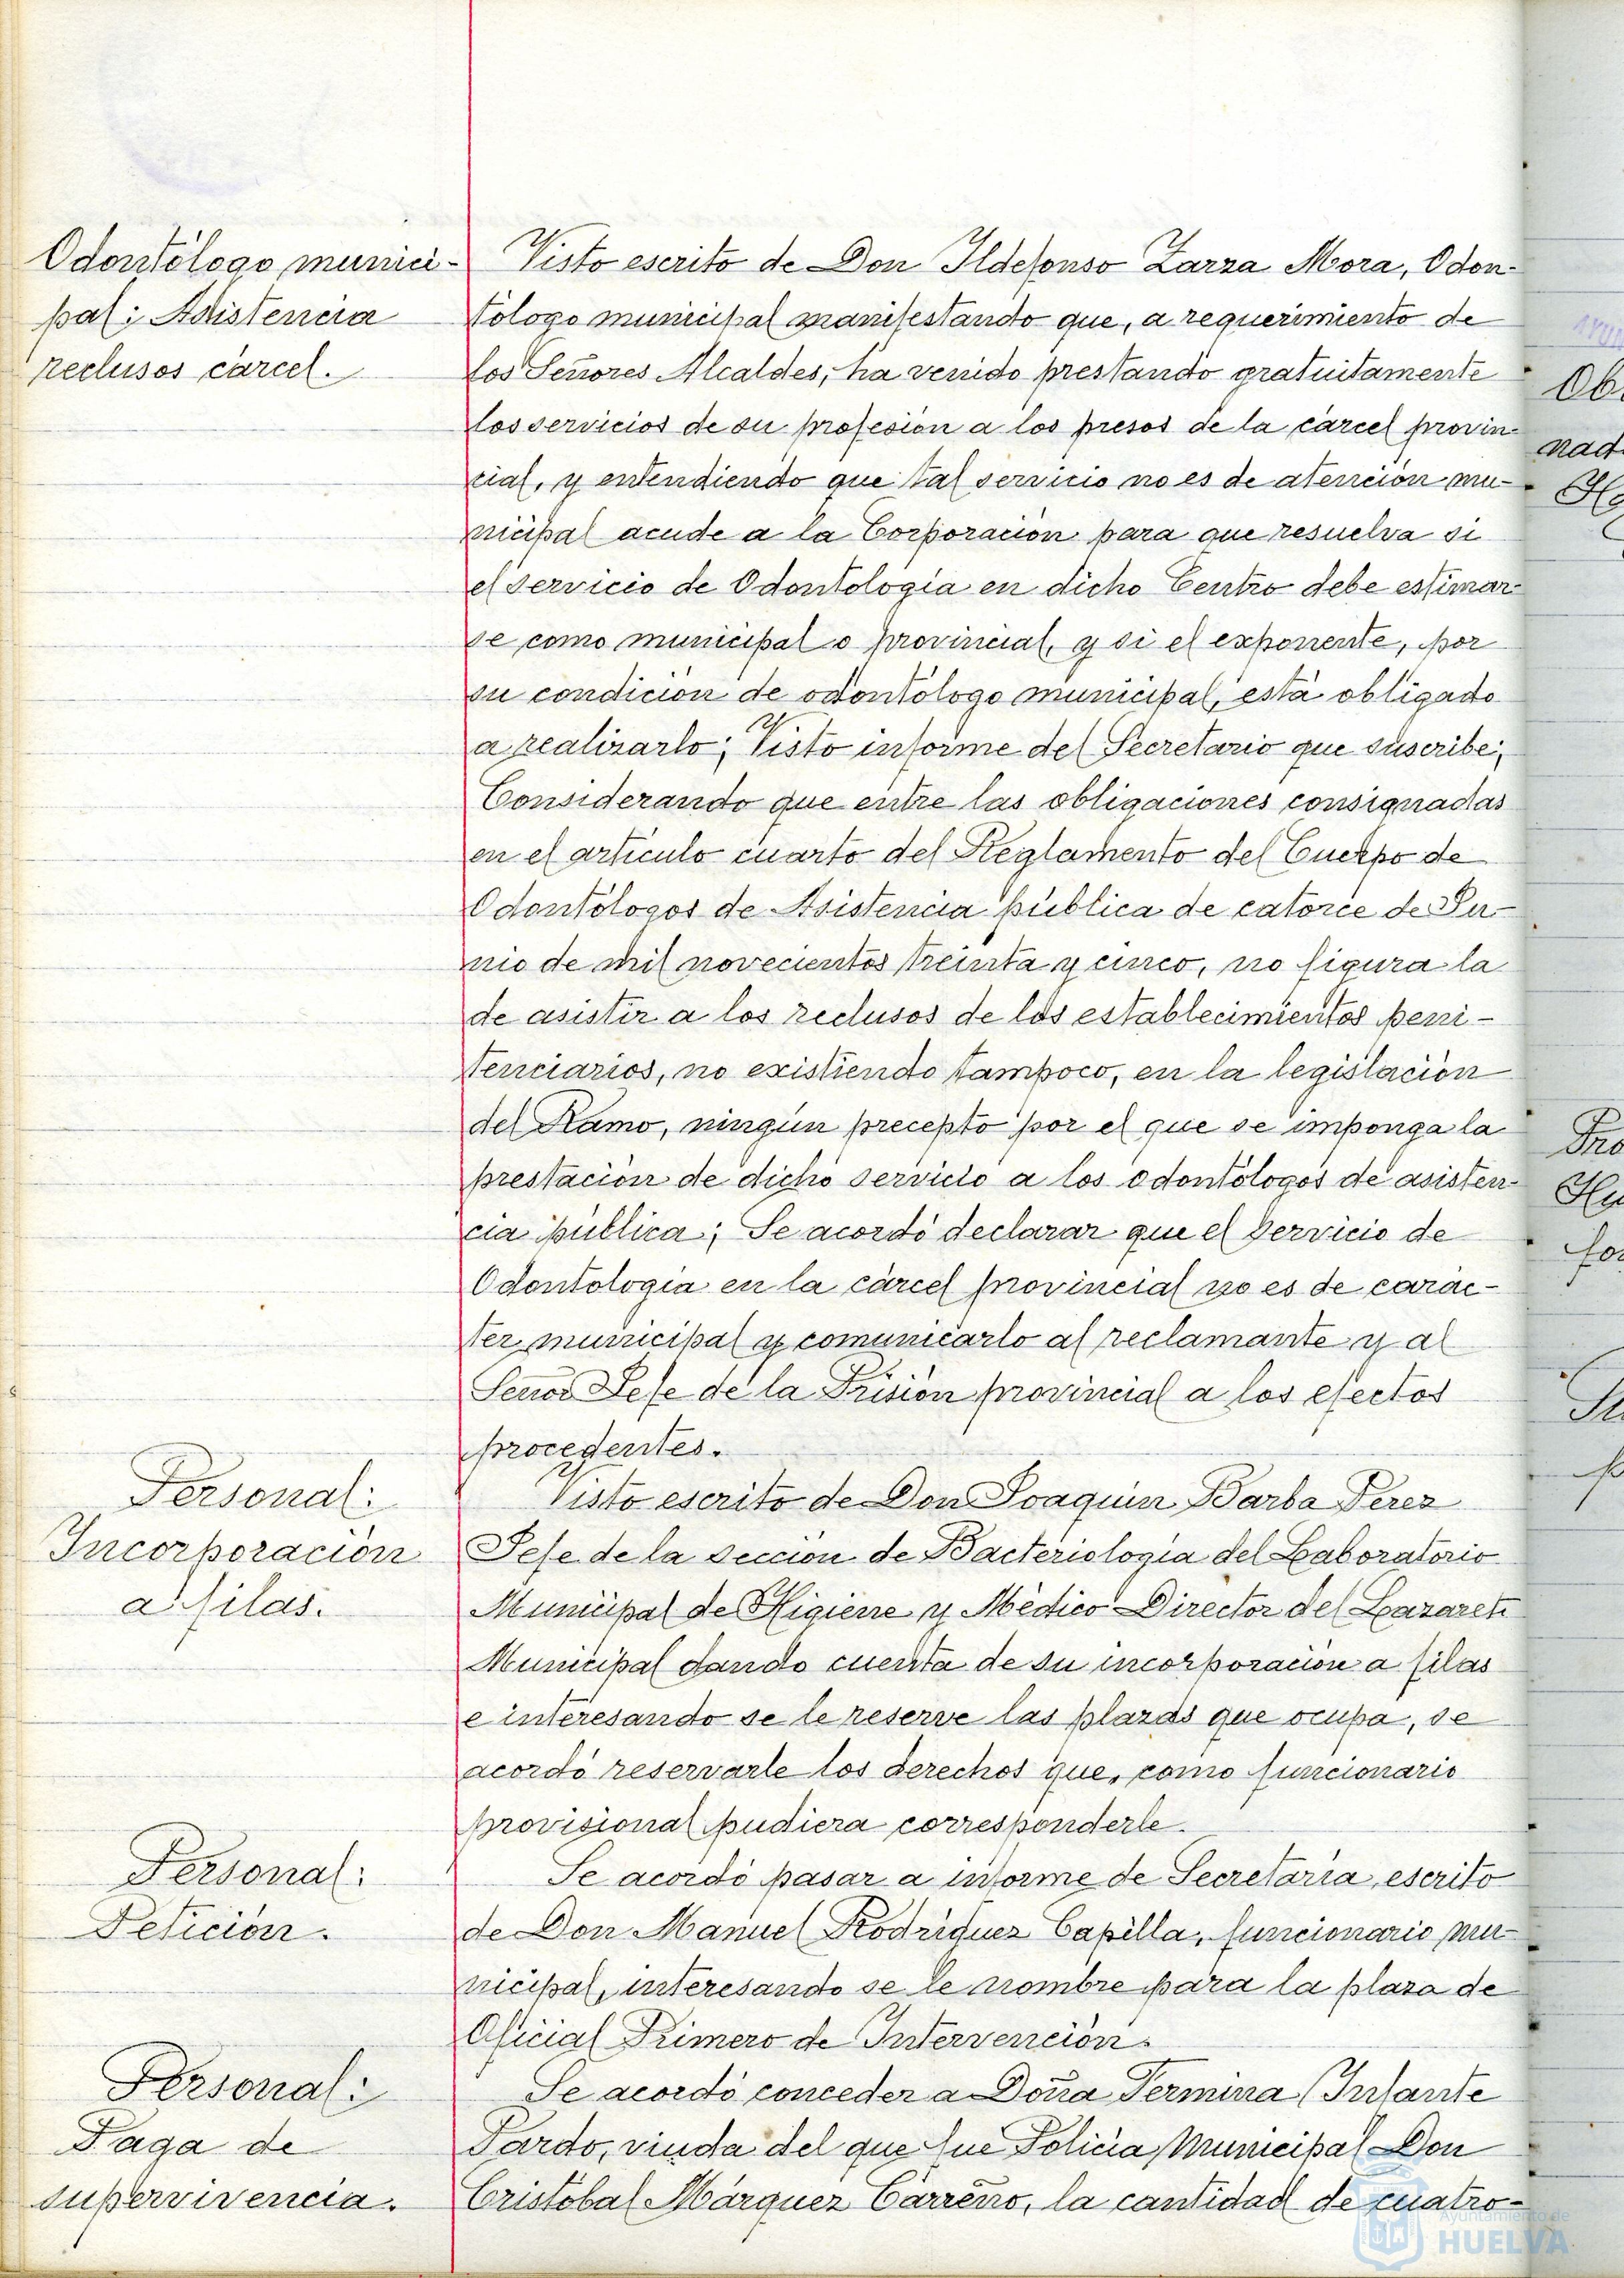 Odontólogo munici-
pal: Asistencia
reclusos cárcel.
Visto escrito de Don Ildefonso Zarza Mora, Odon-
tólogo municipal manifestando que, a requerimiento de
los Señores Alcaldes, ha venido prestando gratuitamente
los servicios de su profesión a los presos de la cárcel provin-
cial, y entendiendo que tal servicio no es de atención mu-
nicipal acude a la Corporación para que resuelva si
el servicio de Odontología en dicho Centro debe estimar-
se como municipal o provincial, y si el exponente, por
su condición de odontólogo municipal, está obligado
a realizarlo; Visto informe del Secretario que suscribe;
Considerando que entre las obligaciones consignadas
en el artículo cuarto del Reglamento del Cuerpo de
Odontólogos de Asistencia pública de catorce de Ju-
nio de mil novecientos treinta y cinco, no figura la
de asistir a los reclusos de los establecimientos peni-
tenciarios, no existiendo tampoco, en la legislación
del Ramo, ningún precepto por el que se imponga la
prestación de dicho servicio a los odontólogos de asisten-
cia pública; Se acordó declarar que el servicio de
Odontología en la cárcel provincial no es de carác-
ter municipal y comunicarlo al reclamante y al
Señor Jefe de la Prisión provincial a los efectos
procedentes.
Personal:
Incorporación
a filas.
Visto escrito de Don Joaquín Barba Perez
Jefe de la sección de Bacteriología del Laboratorio
Municipal de Higiene y Médico Director del Lazareto
Municipal dando cuenta de su incorporación a filas
e interesando se le reserve las plazas que ocupa, se
acordó reservarle los derechos que, como funcionario
provisional pudiera corresponderle.
Personal:
Petición.
Se acordó pasar a informe de Secretaría, escrito
de Don Manuel Rodríguez Capilla, funcionario mu-
nicipal, interesando se le nombre para la plaza de
Oficial Primero de Intervención.
Personal:
Paga de
supervivencia.
Se acordó conceder a Doña Fermina Infante
Pardo, viuda del que fue Policía Municipal Don
Cristóbal Márquez Carreño, la cantidad de cuatro-
Ayuntamiento de
HUELVA